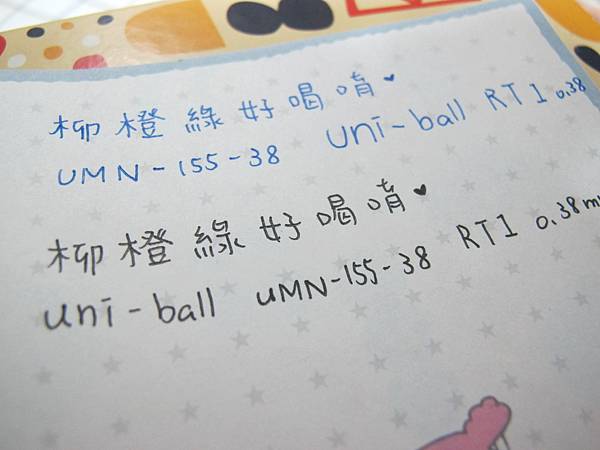 柳橙綠好喝唷♥
UMN-155-38 uni-ball RT1 0.38
柳橙綠好喝唷♥
uni-ball UMN-155-38 RT1 0.38 m